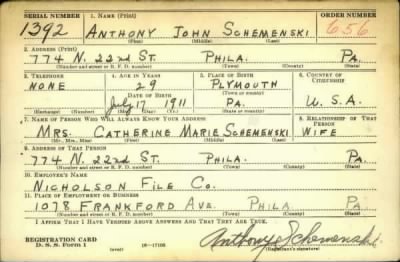 SERIAL NUMBER 1. NAME (Print) ORDER NUMBER
1392 ANTHONY JOHN SCHEMENSKI 656
(First) (Middle) (Last)
2. ADDRESS (Print)
774 N. 22nd ST. PHILA. PA.
(Number and street or R. F. D. number) (Town) (County) (State)
3. TELEPHONE 4. AGE IN YEARS 5. PLACE OF BIRTH 6. COUNTRY OF CITIZENSHIP
NONE 29 PLYMOUTH
DATE OF BIRTH (Town or county)
July 17 1911 PA. U.S.A.
(Exchange) (Number) (Mo.) (Day) (Yr.) (State or country)
7. NAME OF PERSON WHO WILL ALWAYS KNOW YOUR ADDRESS 8. RELATIONSHIP OF THAT PERSON
MRS. CATHERINE MARIE SCHEMENSKI WIFE
(Mr., Mrs., Miss) (First) (Middle) (Last)
9. ADDRESS OF THAT PERSON
774 N. 22nd ST. PHILA. PA.
(Number and street or R. F. D. number) (Town) (County) (State)
10. EMPLOYER'S NAME
NICHOLSON FILE CO.
11. PLACE OF EMPLOYMENT OR BUSINESS
1078 FRANKFORD AVE. PHILA PA.
(Number and street or R. F. D. number) (Town) (County) (State)
I AFFIRM THAT I HAVE VERIFIED ABOVE ANSWERS AND THAT THEY ARE TRUE.
REGISTRATION CARD
D. S. S. Form 1 (over) 16-17105 Anthony Schemenski
(Registrant's signature)